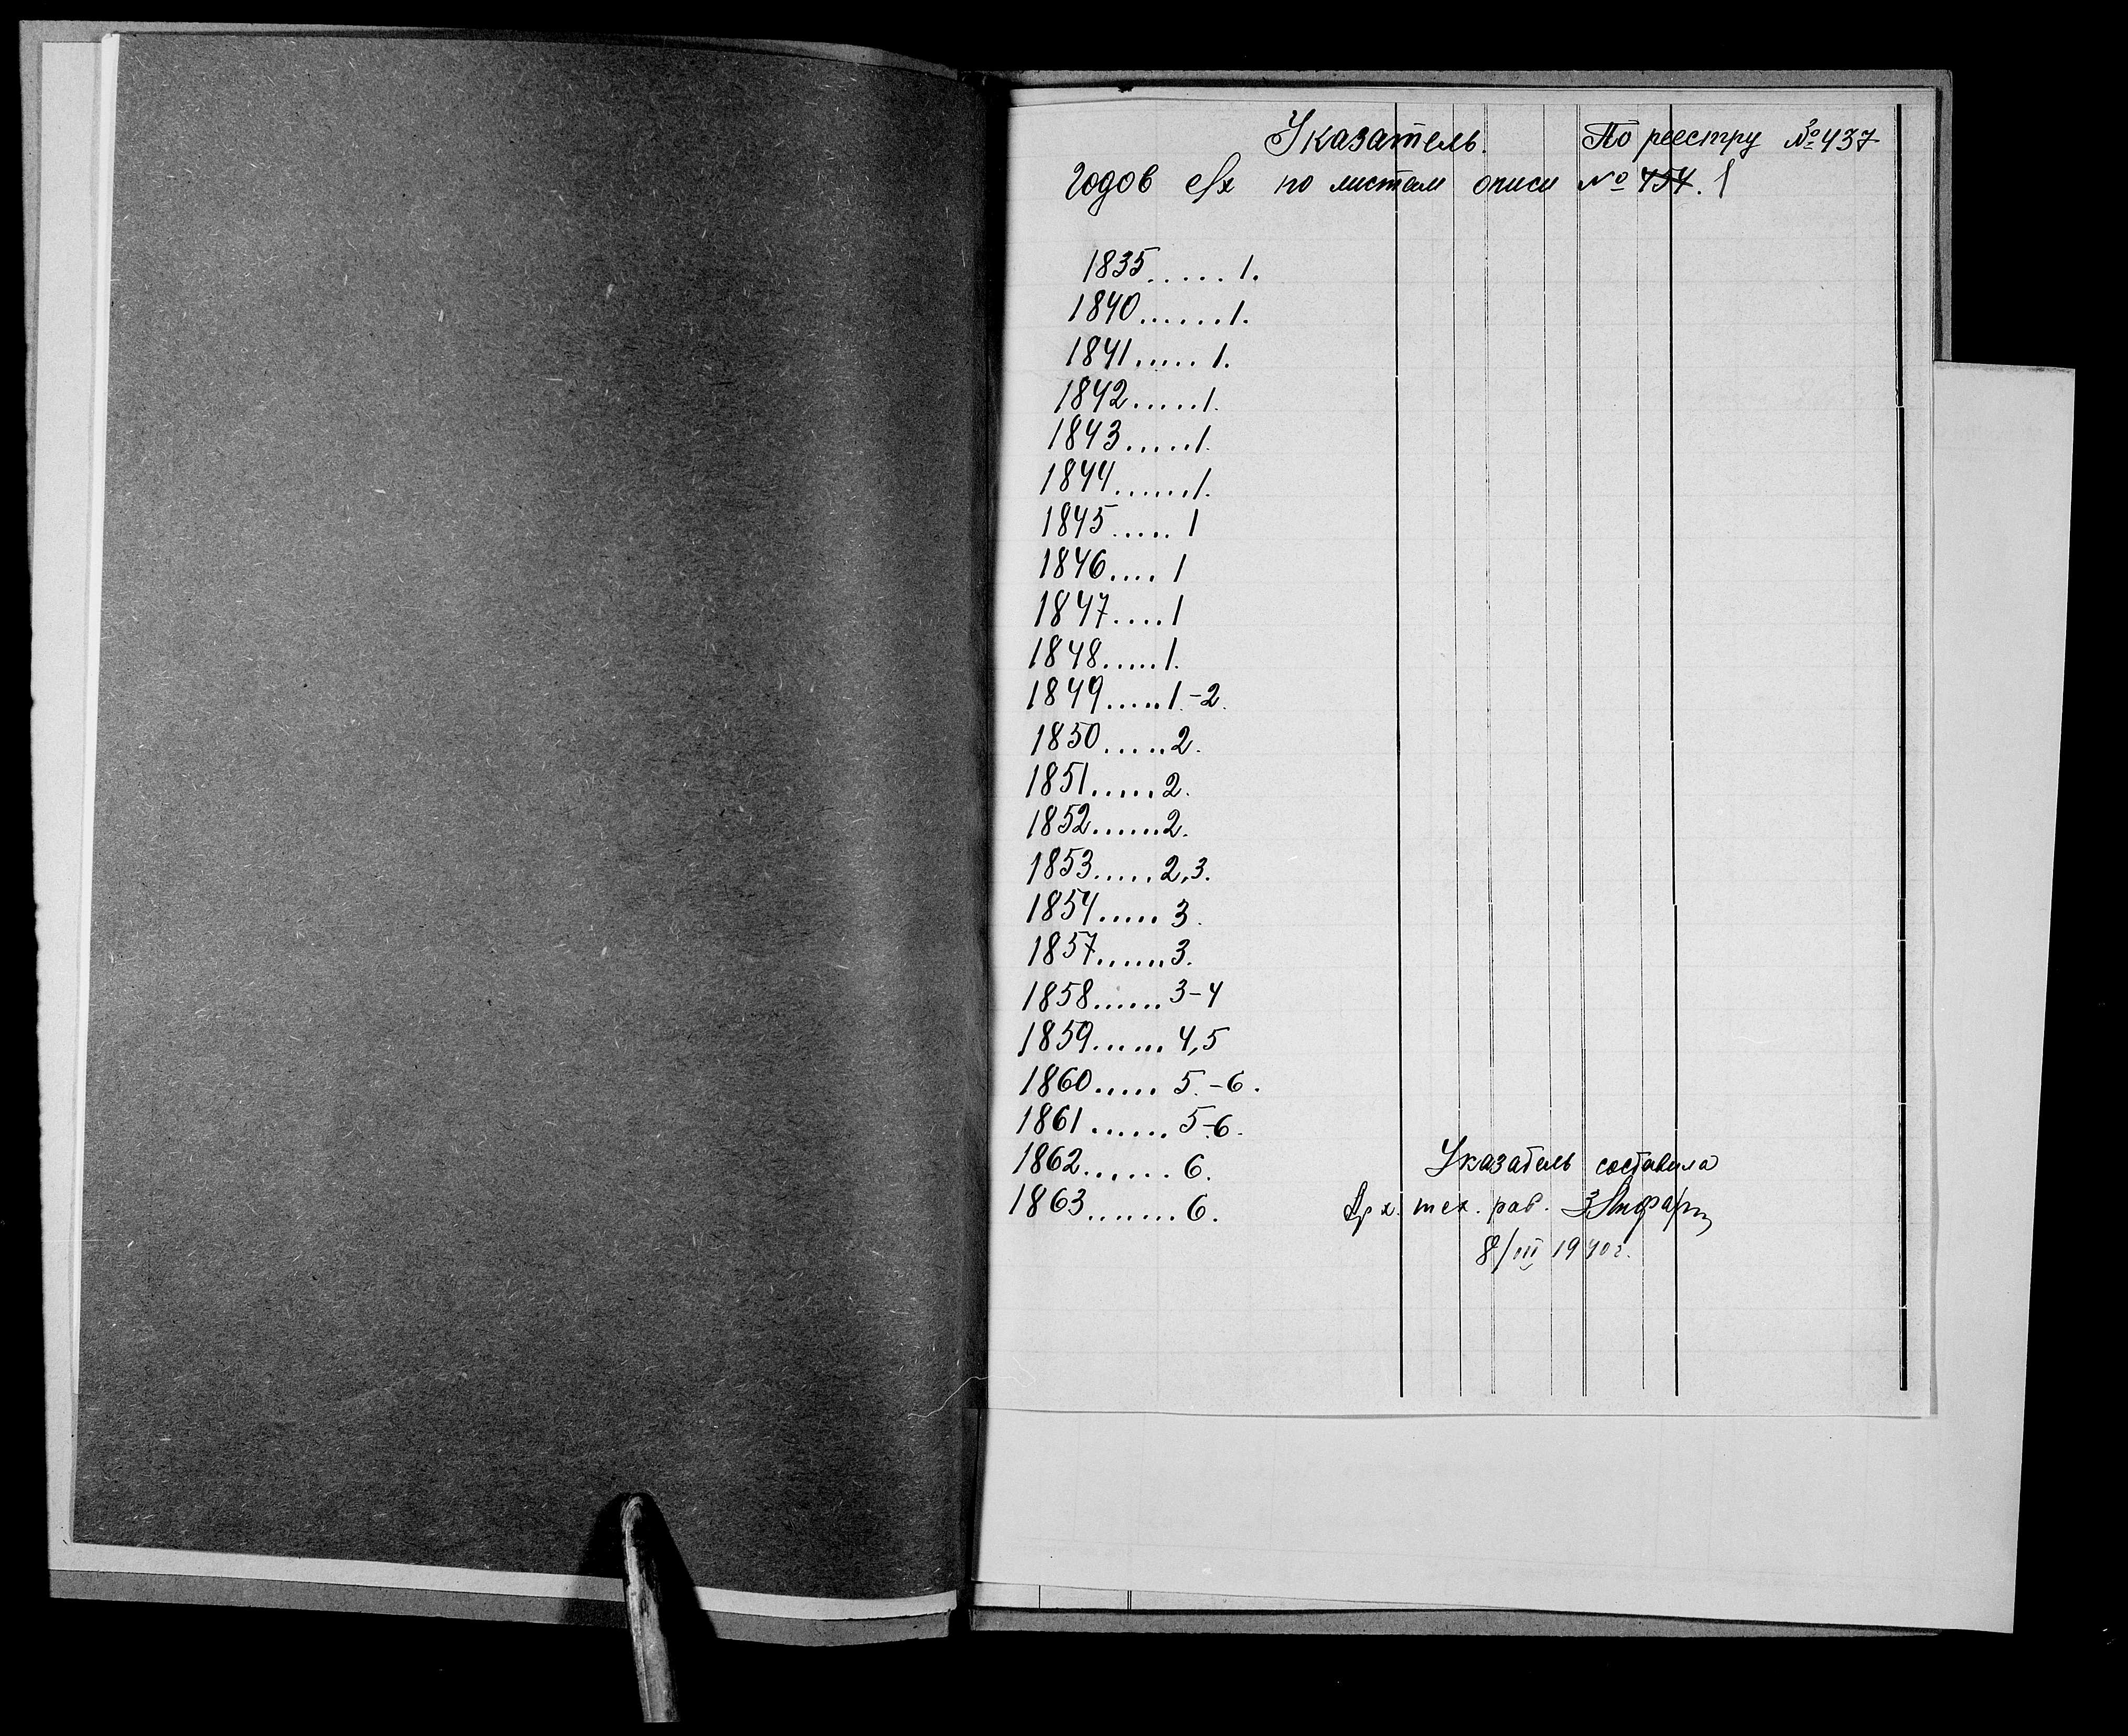 Указатель. По реестру № 437
годов по листам описи № 454. 1
1835.....1.
1840......1.
1841.....1.
1842.....1.
1843.....1.
1844......1.
1845.....1
1846....1
1847....1
1848.....1.
1849.....1-2.
1850.....2.
1851.....2.
1852......2.
1853.....2,3.
1854.....3.
1857......3.
1858......3-4
1859......4,5
1860.....5.-6.
1861......5-6.
1862......6.
1863.......6.
Указатель составила
Арх. тех. раб.
8/III 1940 г.